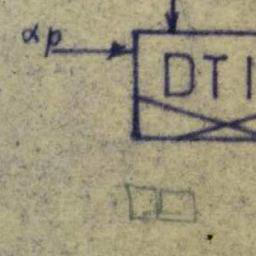 αp
DT I